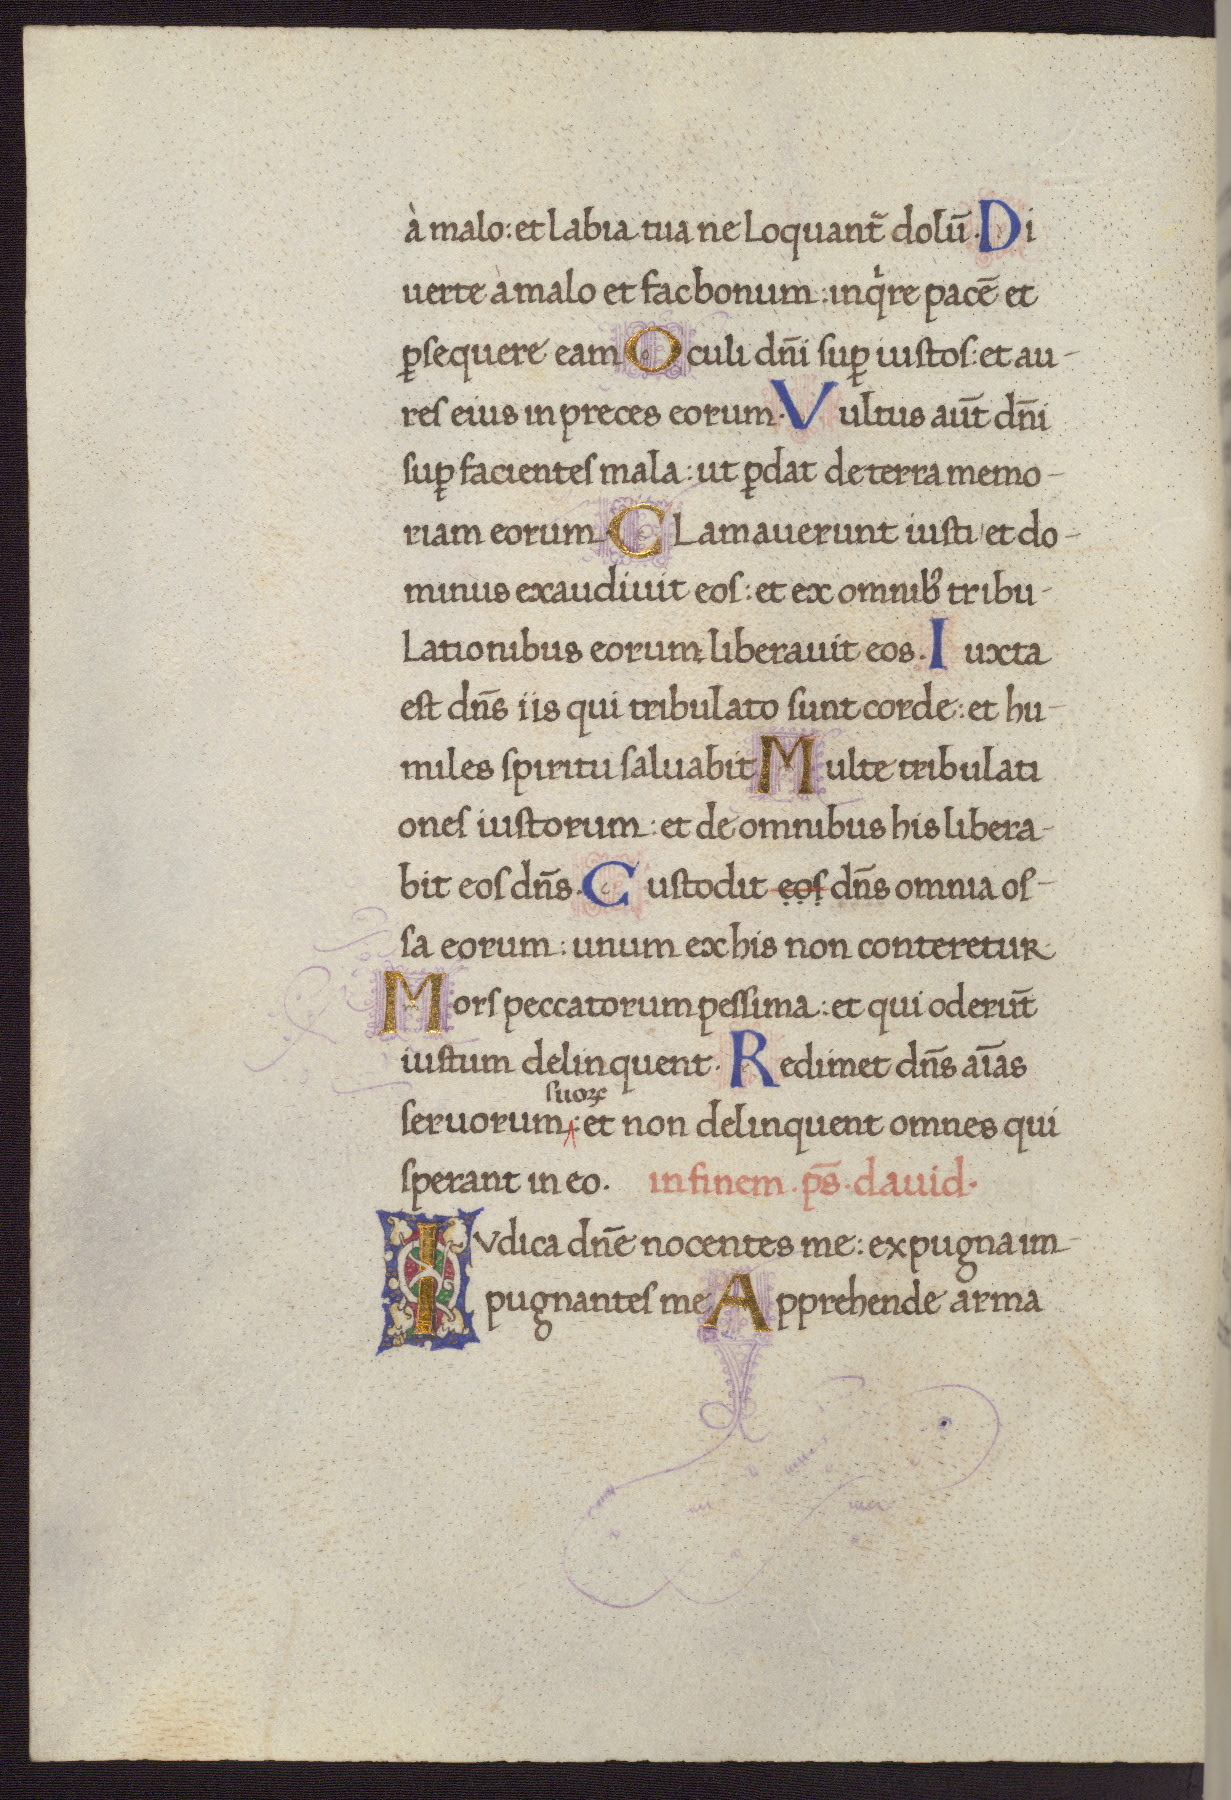 à malo: et labia tua ne loquant᷑ dolū. Di
uerte à malo et fac bonum: inqͥre pacē et
ꝑsequere eam Oculi dn̄i suꝑ iustos: et au-
res eius in preces eorum. Vultus aūt dn̄i
suꝑ facientes mala: ut ꝑdat de terra memo-
riam eorum. CLamauerunt iusti et do-
minus exaudiuit eos: et ex omnibꝰ tribu-
lationibus eorum liberauit eos. Iuxta
est dn̄s iis qui tribulato sunt corde: et hu-
miles spiritu saluabit Multe tribulati
ones iustorum: et de omnibus his libera-
bit eos dn̄s. Custodit eos dn̄s omnia os-
sa eorum: unum ex his non conteretur
Mors peccatorum pessima: et qui oderūt
iustum delinquent. Redimet dn̄s aīas
suoꝝ
seruorum: et non delinquent omnes qui
sperant in eo. in finem. ps̄. dauid.
Iudica dn̄e nocentes me: expugna im-
pugnantes me Apprehende arma